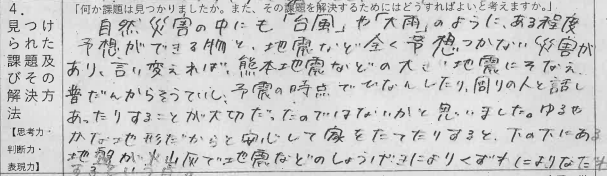 4.
見つけられた課題及びその解決方法
【思考力・判断力・表現力】
「何か課題は見つかりましたか。また、その課題を解決するためにはどうすればよいと考えますか。」
自然災害の中にも「台風」や「大雨」のように、ある程度
予想ができる物と、地震など全く予想つかない災害が
あり、言い変えれば、熊本地震などの大きい地震にそなえ
普だんからそうていし、予震の時点でひなんしたり、周りの人と話し
あったりすることが大切だったのではないかと思いました。ゆるや
かな地形だからと安心して家をたてたりすると、下の下にある
地盤が火山灰で地震などのしょうげきによりくずれ